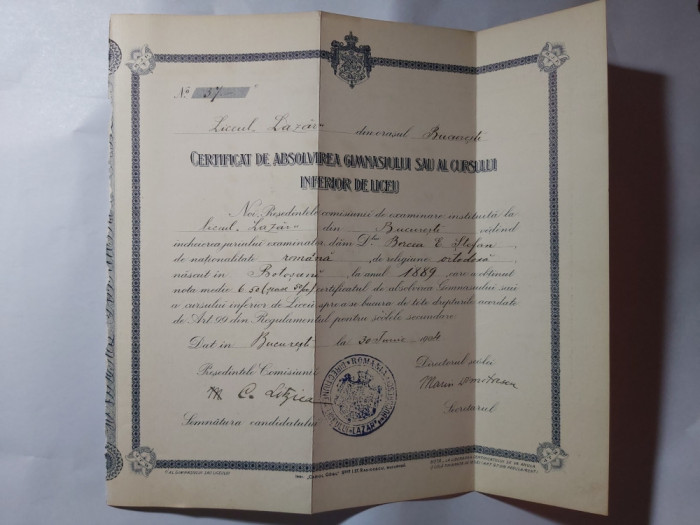 No 37
Liceul "Lazăr" din orasul Bucuresti
CERTIFICAT DE ABSOLVIREA GIMNASIULUI SAU AL CURSULUI
INFERIOR DE LICEU
Noi, Presedintele comisiunei de examinare instituită la
liceul "Lazăr" din Bucuresti vĕdend
incheierea juriului examinator, dăm Dlui E. Stefan
de nationalitate română, de religiune ortodoxă
născut in Botosani la anul 1889, care a obtinut
nota medie 6.50 certificatul de absolvirea Gimnasiului saŭ
a cursului inferior de Liceu spre a se bucura de tote drepturile acordate
de Art. 99 din Regulamentul pentru scólele secundare.
Dat in Bucuresti la 30 Iunie 1904
Presedintele Comisiunei
Directorul scólei
ROMANIA
LAZAR
Secretarul
Semnătura candidatului